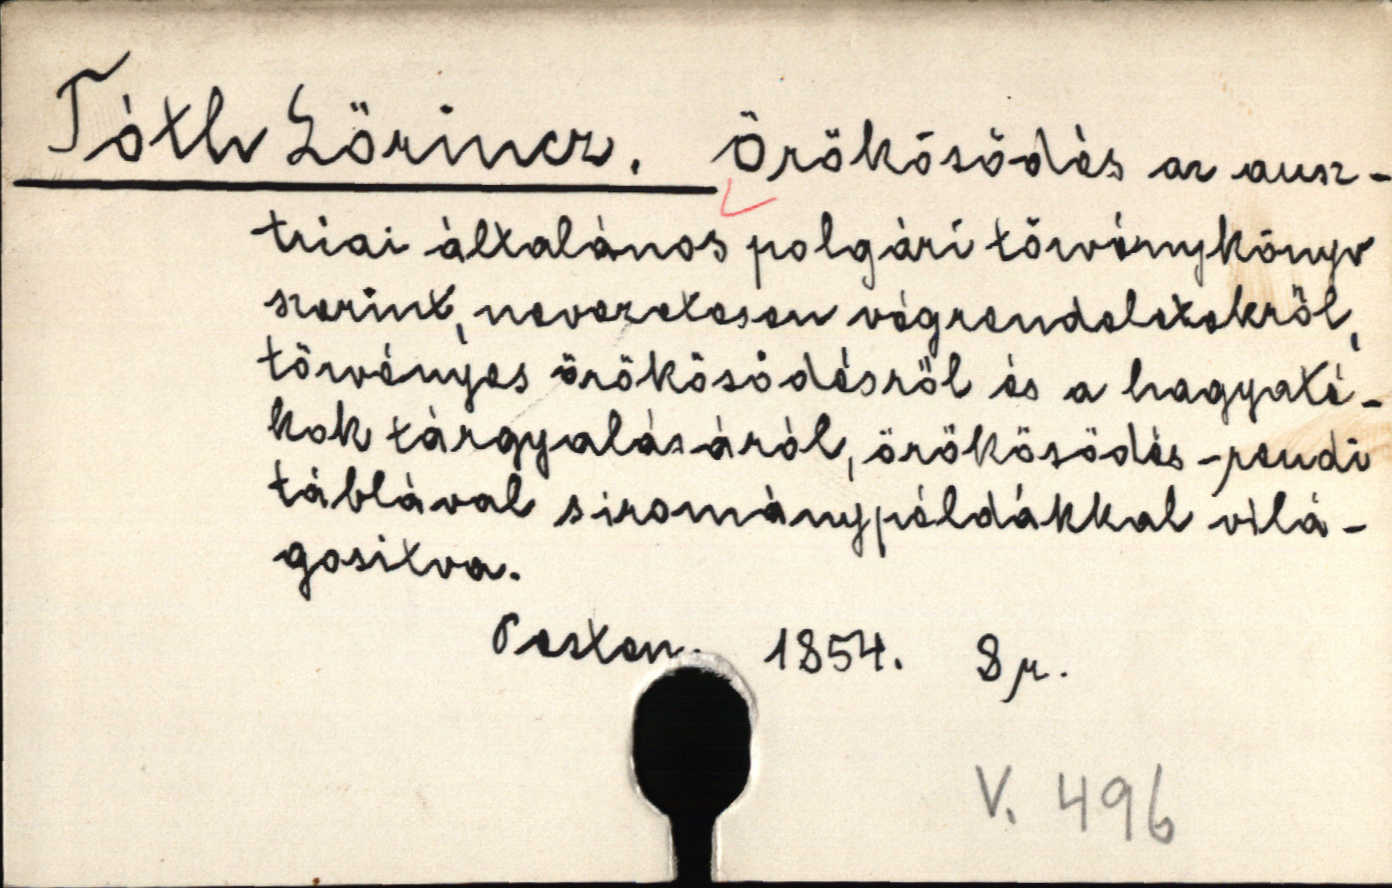 Tóth Lőrincz. Örökösödés az ausz-
triai általános polgári törvénykönyv
szerint, nevezetesen végrendeletekről,
törvényes örökösödésről és a hagyaté-
kok tárgyalásáról, örökösödés-rendi
táblával s iromány példákkal vilá-
gositva.
Pesten. 1854. 8 r.
V. 496